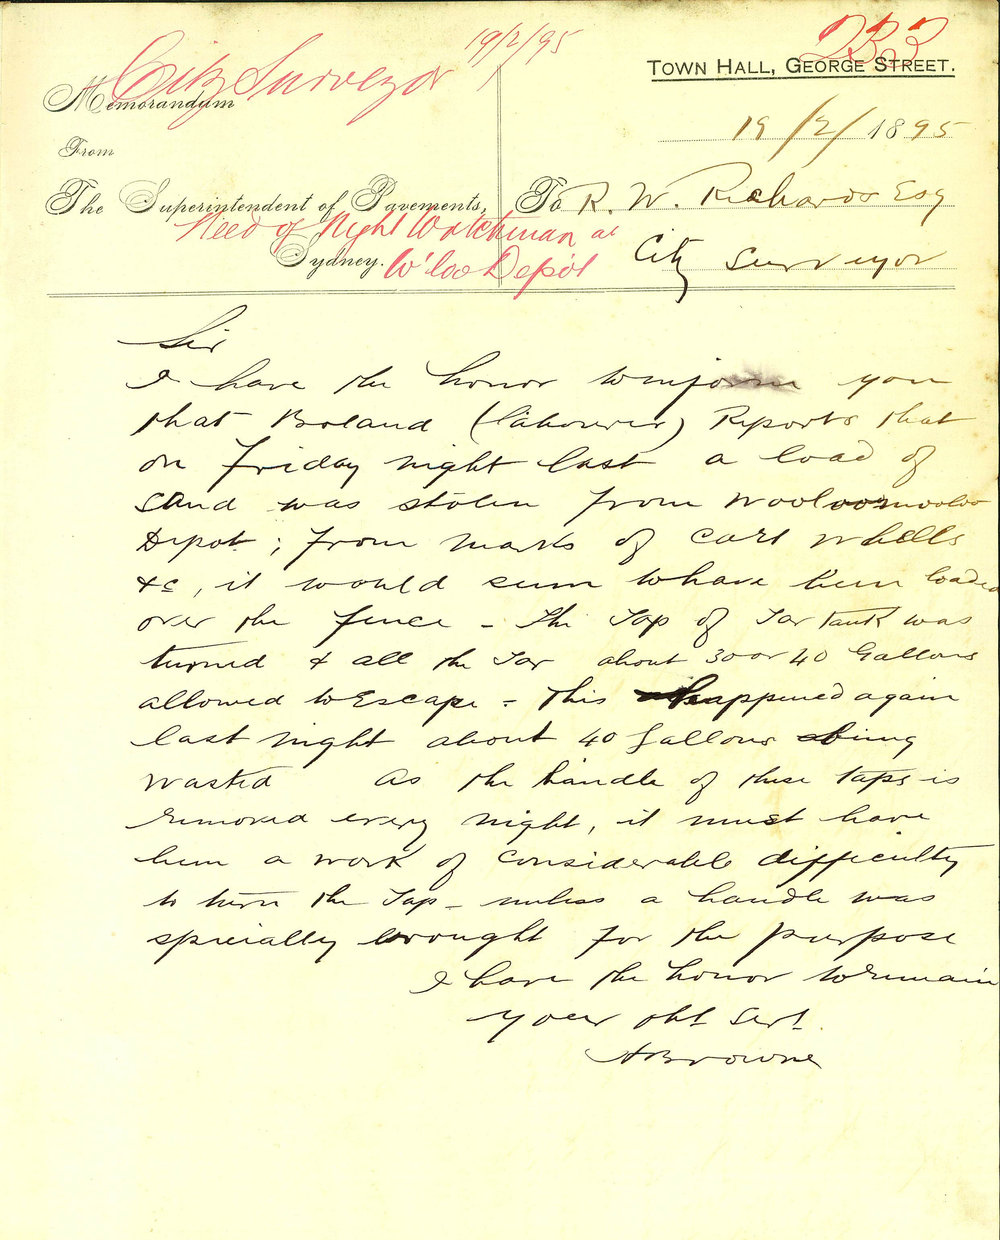 233
City Surveyor 19/2/95
TOWN HALL, GEORGE STREET.
Memorandum
19/2/1895
From
The Superintendent of Pavements,
To R. W. Richards Esq
Need of Night Watchman at
Sydney.
W'loo Depôt
City Surveyor
Sir
I have the honor to inform you
that Boland (labourer) Reports that
on Friday night last a load of
sand was stolen from Wooloomooloo
Depot; from marks of cart wheels
&c, it would seem to have been loaded
over the fence - The Tap of Tar Tank was
turned & all the Tar about 30 or 40 Gallons
allowed to Escape - This happened again
last night about 40 gallons being
wasted As the handle of these taps is
removed every night, it must have
been a work of considerable difficulty
to turn the Tap - unless a handle was
specially brought for the purpose
I have the honor to remain
your obt Servt.
A Browne